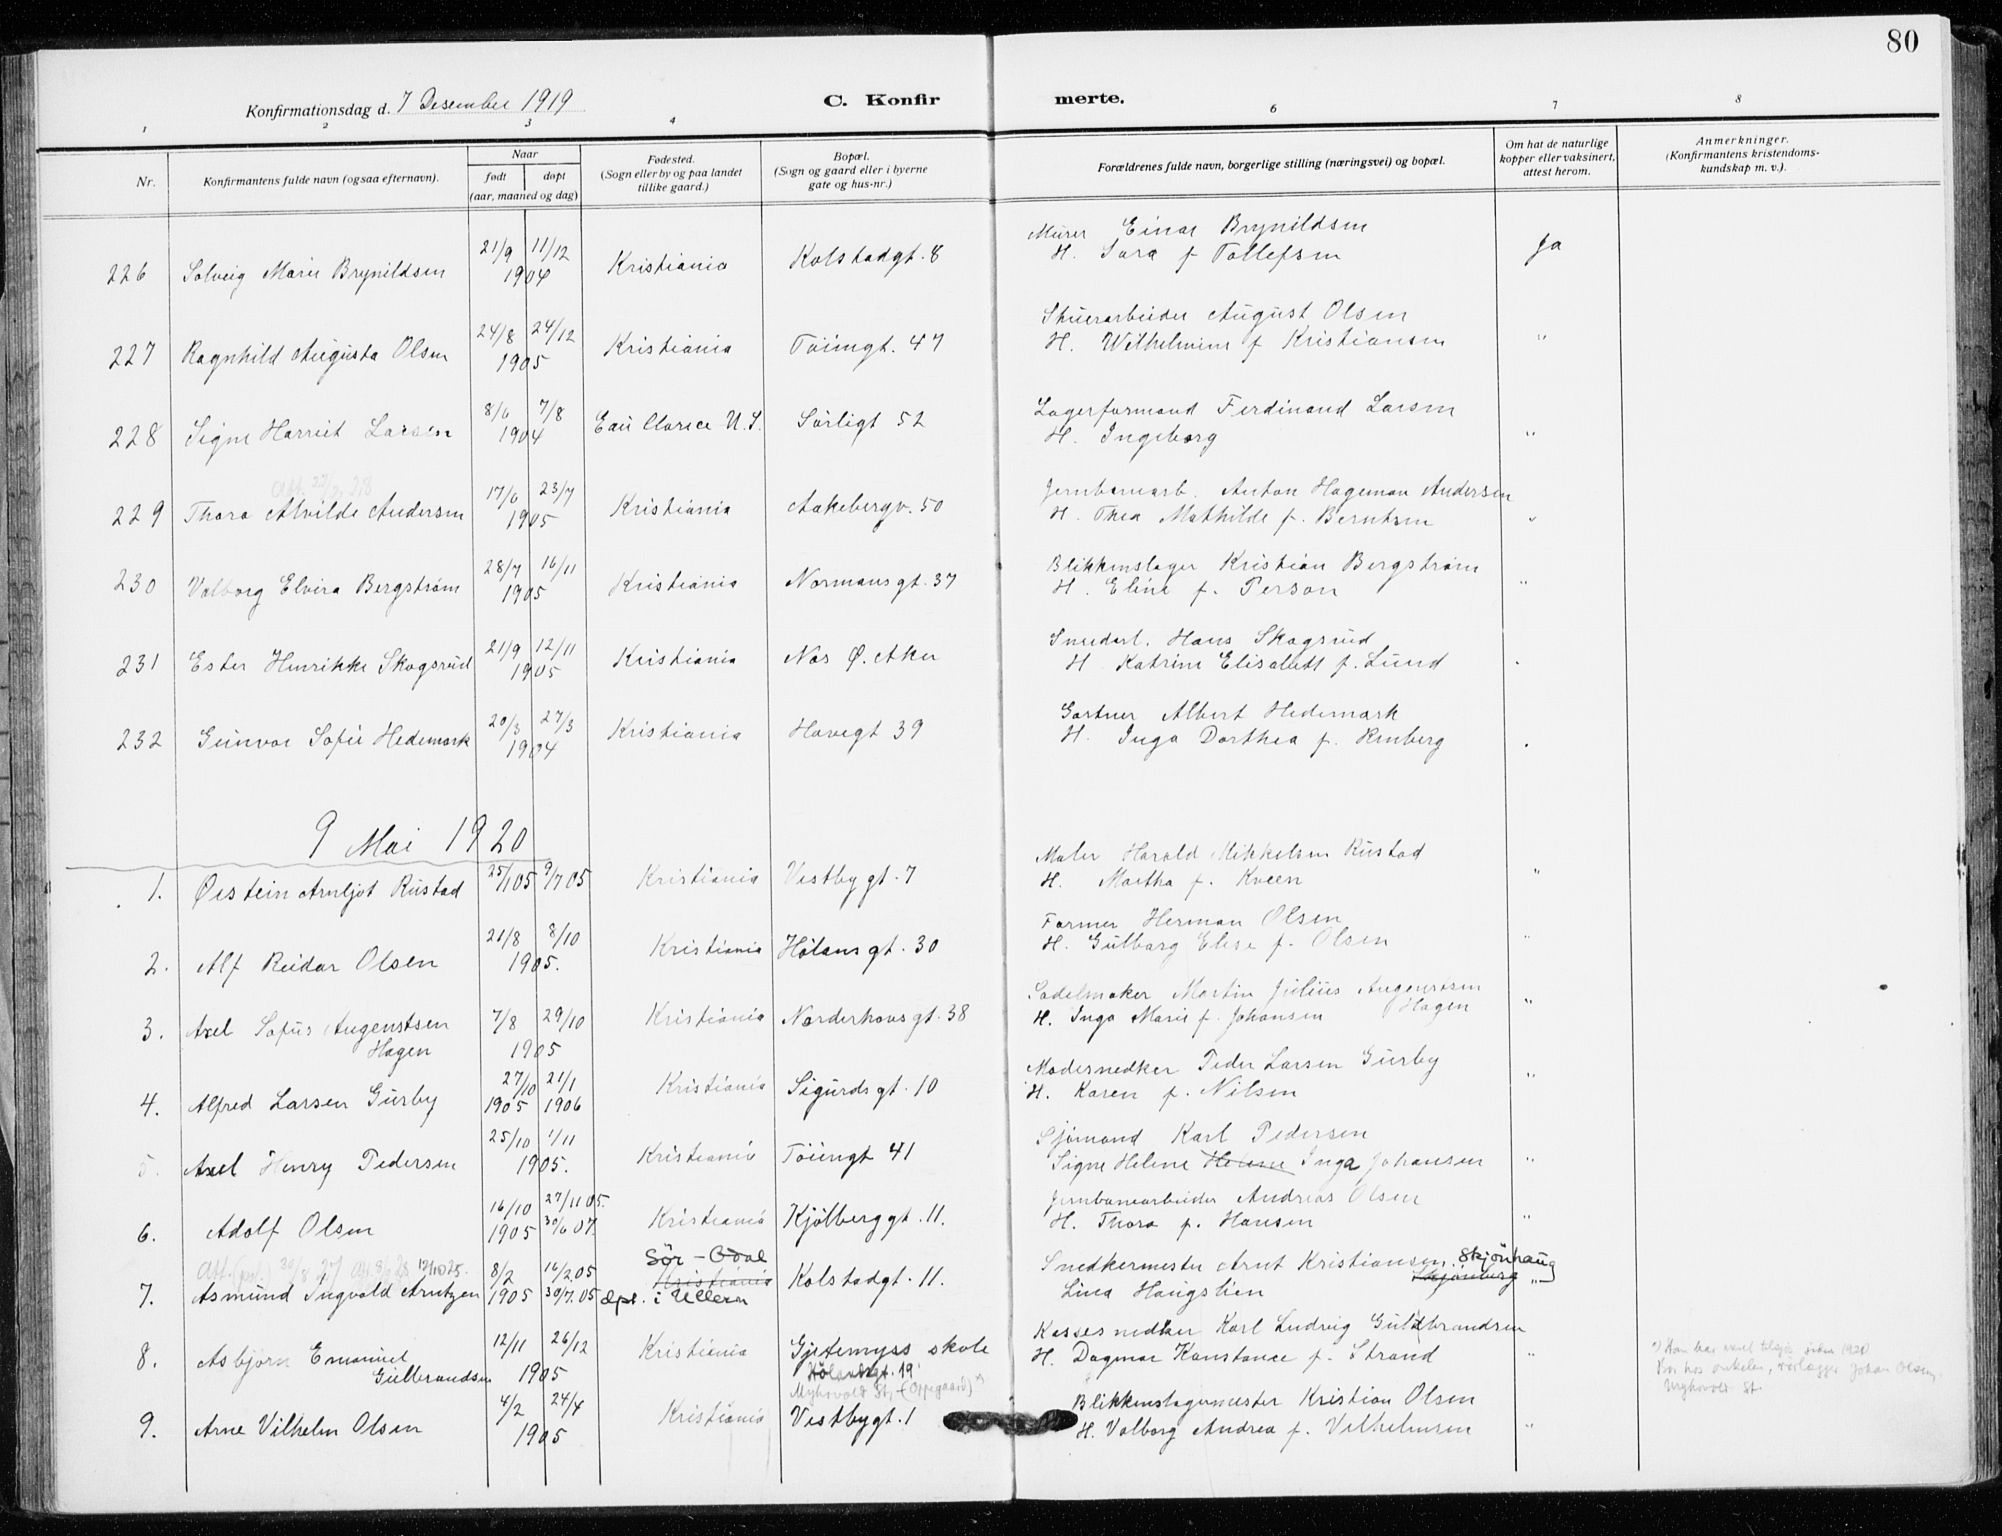 80
Konfirmationsdag d. 7 Desember 1919
C. Konfir merte.
1 2 3 4 6 7 8
Nr.
Konfirmantens fulde navn (ogsaa efternavn).
Naar
født døpt
(aar, maaned og dag)
Fødested.
(Sogn eller by og paa landet
tillike gaard.)
Bopæl.
(Sogn og gaard eller i byerne
gate og hus-nr.)
Forældrenes fulde navn, borgerlige stilling (næringsvei) og bopæl.
Om hat de naturlige
kopper eller vaksinert,
attest herom.
Anmerkninger.
(Konfirmantens kristendoms-
kundskap m. v.).
226 Solveig Marie Brynildsen 21/9 11/12 1904 Kristiania Kolstadgt. 8 Murer Einar Brynildsen
H. Sara f Tollefsen Ja
227 Ragnhild Augusta Olsen 24/8 24/12 1905 Kristiania Töiengt. 47 Skuerarbeider August Olsen
H. Wilhelmine f Kristiansen "
228 Signe Harriet Larsen 8/6 7/8 1904 Eau Clarice U.S. Sørligt 52 Lagerformand Ferdinand Larsen
H. Ingeborg "
229 Thora Alvilde Andersen 17/6 23/7 1905 Kristiania Aakebergv. 50 Jernbanearb. Anton Hageman Andersen
H. Thea Mathilde f. Berntsen "
230 Valborg Elvira Bergstrøm 28/7 16/11 1905 Kristiania Normansgt. 37 Blikkenslager Kristian Bergstrøm
H. Eline f. Person "
231 Ester Henrikke Skogsrud 21/9 12/11 1905 Kristiania Nos Ø. Aker Smedarb. Hans Skogsrud
H. Katrine Elisabett f. Lund
232 Gunvor Sofie Hedemark 20/3 27/3 1904 Kristiania Havegt 39 Gartner Albert Hedemark
H. Inga Dorthea f. Renberg
9 Mai 1920
1. Øistein Arnljot Rustad 25/1 05 9/7 05 Kristiania Vestbygt. 7 Maler Harald Mikkelsen Rustad
H. Martha f. Kveen "
2. Alf Reidar Olsen 21/8 8/10 1905. Kristiania Hølansgt. 30 Former Herman Olsen
H. Gulborg Elise f. Olsen "
3. Axel Sofus Augenstsen
Hagen 7/8 29/10 1905 Kristiania Norderhovsgt. 38 Sadelmaker Martin Julius Augenstsen
H. Inga Marie f. Johansen Hagen "
4. Alfred Larsen Gurby 27/10 1905 21/1 1906 Kristiania Sigurdsgt. 10 Peder Larsen Gurby
H. Karen f. Nilsen "
5. Axel Henry Pedersen 25/10 1/11 1905. Kristiania Töiengt 41 Sjømand Karl Pedersen
Signe Helene Helene Inga Johansen "
6. Adolf Olsen 16/10 1905 27/11 05. 30/6 07. Kristiania Kjølberggt. 11. Jernbanearbeider Andreas Olsen
H. Thora f. Hansen "
7. Asmund Ingvald Arntzen 8/2 1905 16/2 05 30/7. 05 Sör-Odal
Kristiania
döpt. i Ullern Kolstadgt. 11. Snedkermester Arnt Kristiansen Skjönhaug
Lina Haugslien "
8. Asbjørn Emanuel
Gulbrandsen 12/11 26/12 1905 Kristiania Gjetemyss skole
Hölandsgt. 19
Myhrvold St. (Oppegaard) Kassesnedker Karl Ludvig Guldbrandsen
H. Dagmar Konstance f. Strand "
9. Arne Vilhelm Olsen 4/2 24/4 1905 Kristiania Vestbygt. 1 Blikkenslagermester Kristian Olsen
H. Valborg Andrea f. Vilhelmsen "